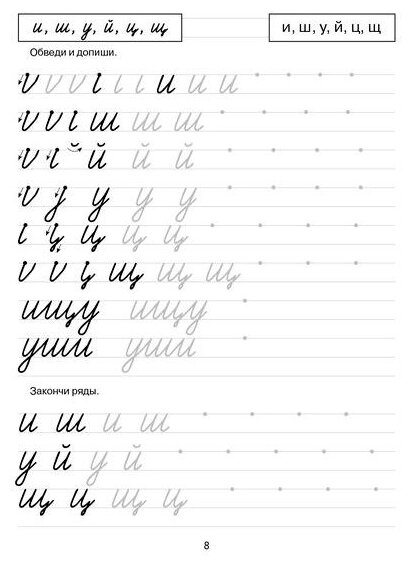 и, ш, у, й, ц, щ
и, ш, у, й, ц, щ
Обведи и допиши.
и и и
ш ш ш
й й й
у у у
ц ц ц
щ щ щ
ищу ищу
уши уши
Закончи ряды.
и ш и ш
у й у й
щ ц щ ц
8